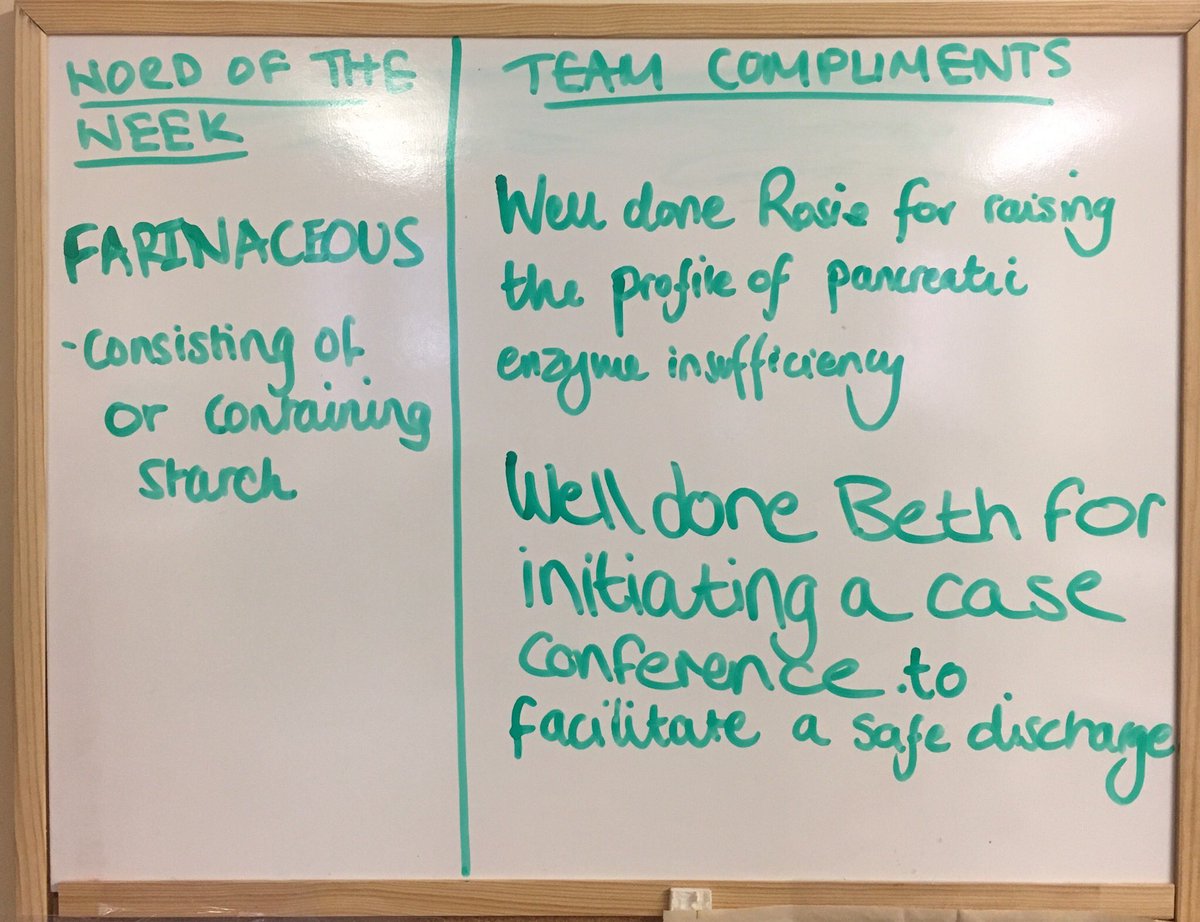 WORD OF THE
WEEK
FARINACEOUS
- Consisting of
or containing
starch
TEAM COMPLIMENTS
Well done Rosie for raising
the profile of pancreatic
enzyme insufficiency
Well done Beth for
initiating a case
conference to
facilitate a safe discharge